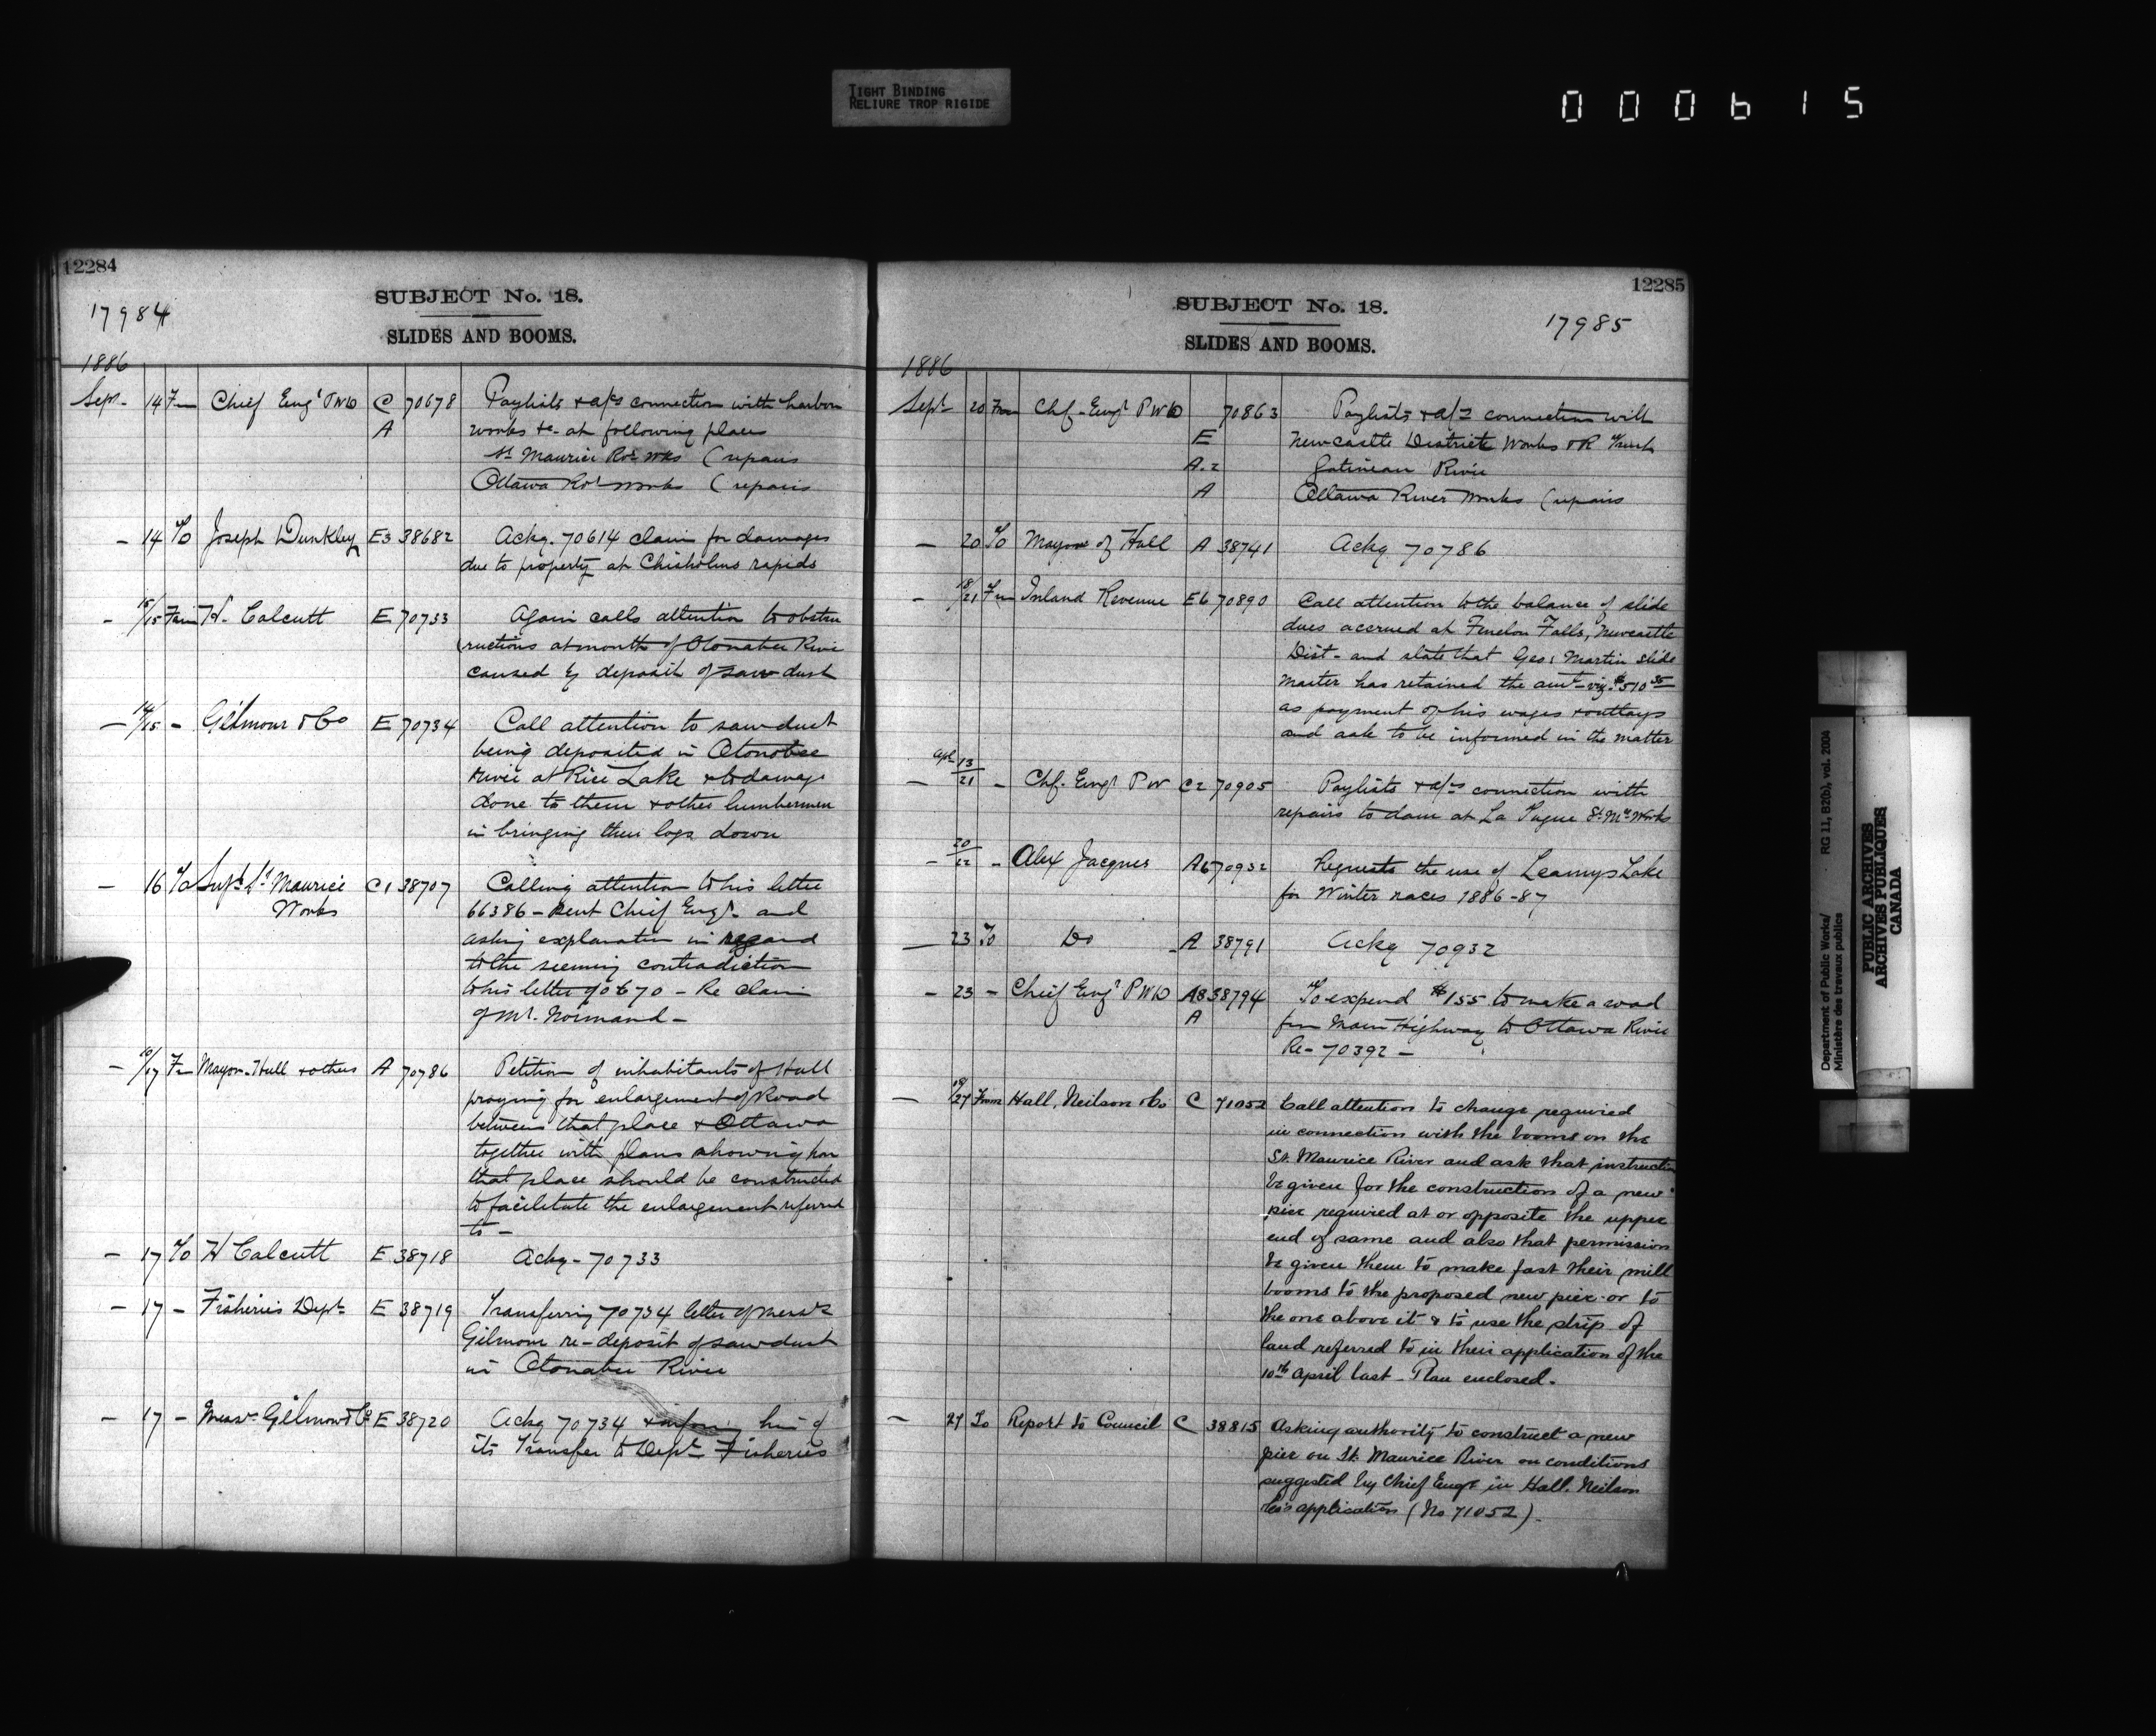 TIGHT BINDING
RELIURE TROP RIGIDE
000615
12284
17984
SUBJECT No. 18.
SLIDES AND BOOMS.
1886
Sept- 14 Fm Chief Engr PWD C 70678 Paylists & a/cs connection with harbor
A works &c. at following places
St Maurice Rvr wks (repairs
Ottawa Rvr works (repairs
- 14 To Joseph Dunkley E3 38682 Ackg. 70614 claim for damages
due to property at Chisholms rapids
- 15/15 From H. Calcutt E 70733 Again calls attention to obstru
ructions at mouth of Otonabee River
caused by deposit of sawdust
- 14/15 - Gilmour & Co E 70734 Call attention to sawdust
being deposited in Otonobee
River at Rice Lake & to damage
done to them & other lumbermen
in bringing their logs down
- 16 To Supt St Maurice C1 38707 Calling attention to his letter
Works 66386 - sent Chief Engr. and
asking explanation in regard
to the seeming contradiction
to his letter 70670 - Re claim
of Mr. Normand -
- 10/17 Fm Mayor Hull & others A 70786 Petition of inhabitants of Hull
praying for enlargement of Road
between that place & Ottawa
together with plans showing how
that place should be constructed
to facilitate the enlargement referred
to -
- 17 To H Calcutt E 38718 Ackg - 70733
- 17 - Fisheries Dept E 38719 Transferring 70734 letter of Messrs
Gilmour re-deposit of sawdust
in Otonabee River
- 17 - Messrs Gilmour & Co E 38720 Ackg 70734 & inform him of
its Transfer to Dept Fisheries
12285
SUBJECT No. 18.
17985
SLIDES AND BOOMS.
1886
Sept 20 From Chf. Engr PWD 70863 Paylists & a/cs connection with
E Newcastle District Works & R Trent
A.2 Gatineau River
A Ottawa River Works (repairs
- 20 To Mayor of Hull A 38741 Ackg 70786
- 18/21 Fm Inland Revenue E6 70890 Call attention to the balance of slide
dues accrued at Fenelon Falls, Newcastle
Dist- and state that Geo: Martin slide
master has retained the amt- viz. $510 35
as payment of his wages & outlays
and ask to be informed in the matter
Apl 13
- 21 - Chf. Engr PW C2 70905 Paylists & a/cs connection with
repairs to dam at La Tuque St. Mce Works
- 20/22 - Alex Jacques A6 70932 Requests the use of Leamys Lake
for Winter races 1886-87
- 23 To Do A 38791 Ackg 70932
- 23 - Chief Engr PWD A8 38794 To expend $155 to make a road
A from Main Highway to Ottawa River
Re- 70392 -
- 19/27 From Hall, Neilson & Co C 71052 Call attention to change required
in connection with the booms on the
St. Maurice River and ask that instruction
be given for the construction of a new
pier required at or opposite the upper
end of same and also that permission
be given them to make fast their mill
booms to the proposed new pier or to
the one above it & to use the strip of
land referred to in their application of the
10th April last - Plan enclosed.
- 27 To Report to Council C 38815 Asking authority to construct a new
pier on St. Maurice River on conditions
suggested by Chief Engr in Hall. Neilson
Co's application (No 71052).
Department of Public Works/
Ministère des travaux publics
RG 11, B2(b), vol. 2004
PUBLIC ARCHIVES
ARCHIVES PUBLIQUES
CANADA